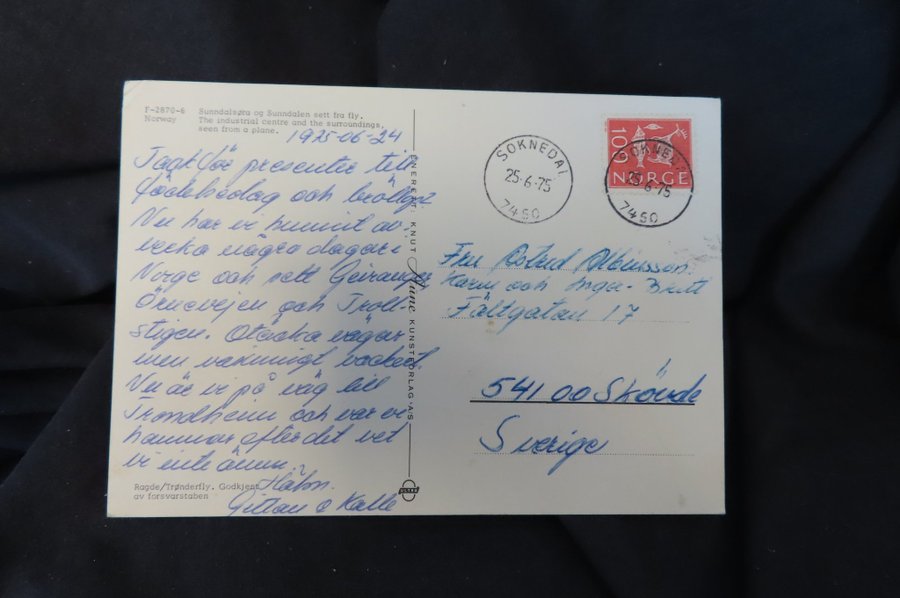 F-2870-6 Sunndalsøra og Sunndalen sett fra fly.
Norway The industrial centre and the surroundings,
seen from a plane.
1975-06-24
Tack för presenter till
födelsedag och bröllop.
Nu har vi hunnit av-
verka några dagar i
Norge och sett Geiranger
Örnevejen och Troll-
stigen. Otäcka vägar
men vackert.
Nu är vi på väg till
Trondheim och var vi
hamnar efter det vet
vi inte ännu.
Hälsn.
Gittan o Kalle
Ragde/Trønderfly. Godkjent
av forsvarstaben
ENERETT: KNUT Aune KUNSTFORLAG A·S
SOKNEDAL
25·6·75
7450
100
NORGE
SOKNEDAL
25·6·75
7450
Fru Astrid Albinsson
Karin och Inger-Britt
Fältgatan 17
541 00 Skövde
Sverige